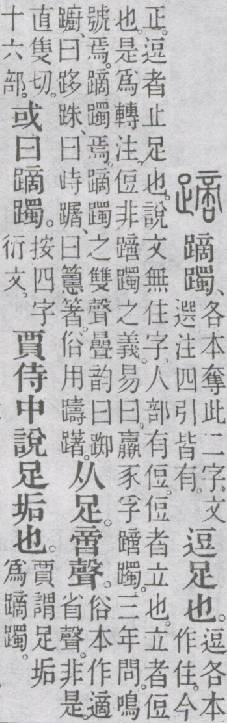 蹢 蹢躅、各本奪此二字。文選注四引皆有。逗足也。逗各本作住。今
正。逗者止足也、說文無住字。人部有侸。侸者立也。立者侸
也。是爲轉注。侸非蹢躅之義。易曰。羸豕孚蹢躅。三年問。鳴
號焉。蹢躅焉。蹢躅之雙聲疊韵曰踟
躕曰跢跦、曰峙䠧、曰箸。俗用躊躇。从足。啻聲。俗本作適省聲。非是。
直隻切。十六部。或曰蹢躅。按四字衍文。賈侍中說足垢也。賈謂足垢爲蹢躅。